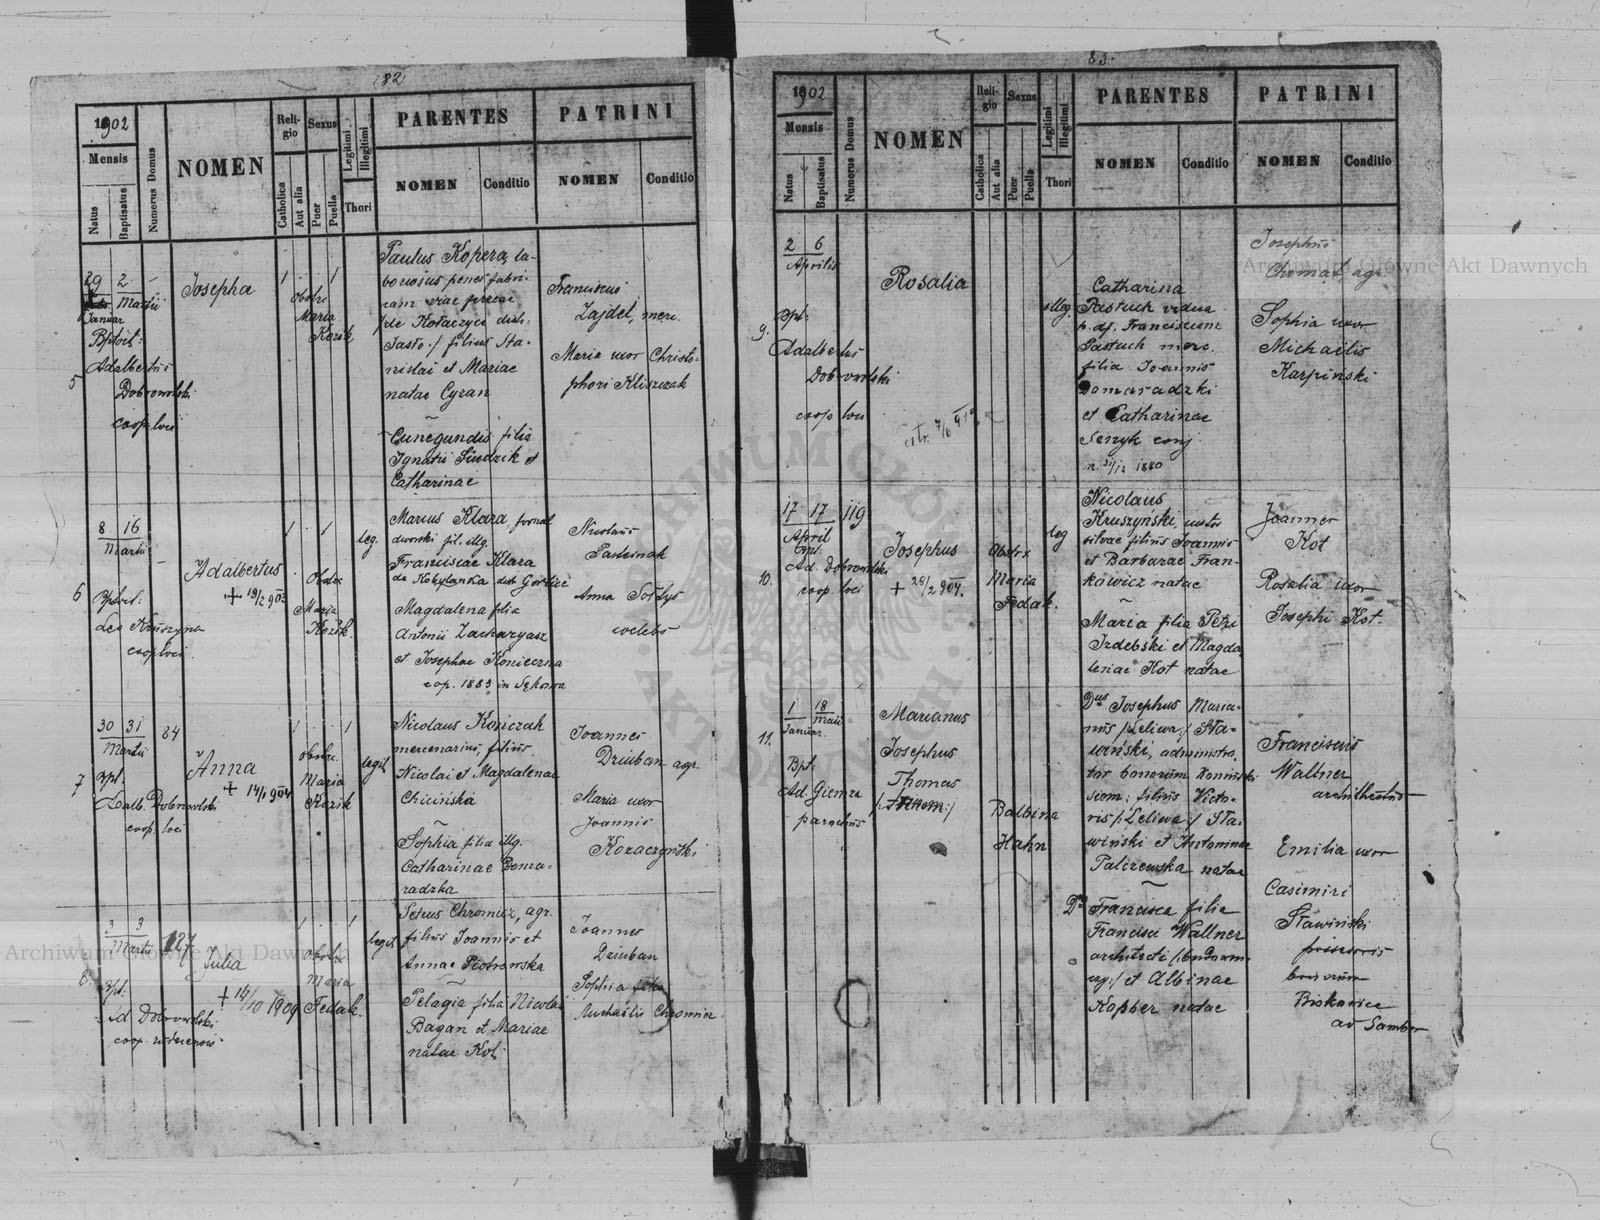 82
1902
Mensis
Natus
Baptisatus
Numerus Domus
NOMEN
Reli-
gio
Catholica
Aut alia
Sexus
Puer
Puella
Legitimi
Illegitimi
Thori
PARENTES
NOMEN
Conditio
PATRINI
NOMEN
Conditio
5
29 2
Martii
Januar
Adalbertus
Dobrowolski
coop loci
Josepha
1 1
obstre
Maria
Kozik
Paulus Kopera, la-
boriosus penes fabri-
cam viae ferreae
/de Kołaczyce distr.
Jasło./ filius Sta-
nislai et Mariae
natae Cyran
Cunegundis filia
Ignatii et
Catharinae
Franciscus
Zajdel, merc.
Maria uxor Christo-
phori Kliszczak
6
8 16
Martii
Leo Kruszyna
coop loci.
Adalbertus
+ 19/2 903
1 1
Obstr
Maria
Kozik.
leg.
Marcus Klara, fornal
dworski fil. illg.
Franciscae Klara
de Kobylanka distr Gorlice
Magdalena filia
Antonii Zacharyasz
et Josephae Konieczna
cop. 1889 in Sękowa
Nicolaus
Pasternak
Anna Sołtys
coelebs
7
30 31
Martii
84
Bpt:
Dobrowolski
coop. loci
Anna
+ 14/1 904
1 1
obstre.
Maria
Kozik
legit
Nicolaus Kończak
mercenarius, filius
Nicolai et Magdalenae
Chicińska
Sophia filia illg.
Catharinae Doma-
radzka
Joannes
Dziuban agr.
Maria uxor
Joannis
Kozaczyński
8.
3 3
Martii
127
Bpt:
Ad Dobrowolski
coop.
Julia
+ 14/10 1909
1 1
obstre
Maria
Fedak.
legit
Petrus Chromicz, agr.
filius Joannis et
Annae Piotrowska
Pelagia filia Nicolai
Bagan et Mariae
natae Kot.
Joannes
Dziuban
Sophia
Michaelis
83.
1902
Mensis
Natus
Baptisatus
Numerus Domus
NOMEN
Reli-
gio
Catholica
Aut alia
Sexus
Puer
Puella
Legitimi
Illegitimi
Thori
PARENTES
NOMEN
Conditio
PATRINI
NOMEN
Conditio
9.
2 6
Aprilis
Bpt:
Adalbertus
Dobrowolski
coop loci
Rosalia
illeg.
Catharina
Pastuch vidua
p. df. Franciscum
Pastuch merc.
filia Joannis
Domaradzki
et Catharinae
Senyk conj
n. 31/12 1880
Josephus
Chomat, agr.
Sophia uxor
Michaelis
Karpiński
10.
17 17
April
119
Bpt:
Ad. Dobrowolski
coop. loci
Josephus
+ 28/2 904.
Obstrx
Maria
Fedak.
leg
Nicolaus
Kruszyński, custos
silvae filius Joannis
et Barbarae Fran-
kowicz natae
Maria filia Petri
Izdebski et Magda
lenae Kot natae
Joannes
Kot
Rosalia uxor
Josephi Kot.
11.
1 18
Januar. Maii
Bpt:
Ad Giemza
parochus
Marianus
Josephus
Thomas
Balbina
Hahn
Dnus Josephus Maria-
nus /:Leliwa:/ Sta-
wiński, administra-
tor bonorum
filius Victo-
ris /:Leliwa:/ Sta-
wiński et Antoninae
Palczewska natae
Dna Francisca filia
Francisci Wallner
architecti
et Albinae
Kopper natae
Franciscus
Wallner
architectus
Emilia uxor
Casimiri
Stawiński
bonorum
Biskowice
ad Sambor
Archiwum Główne Akt Dawnych
Archiwum Główne Akt Dawnych
ARCHIWUM GŁÓWNE AKT DAWNYCH